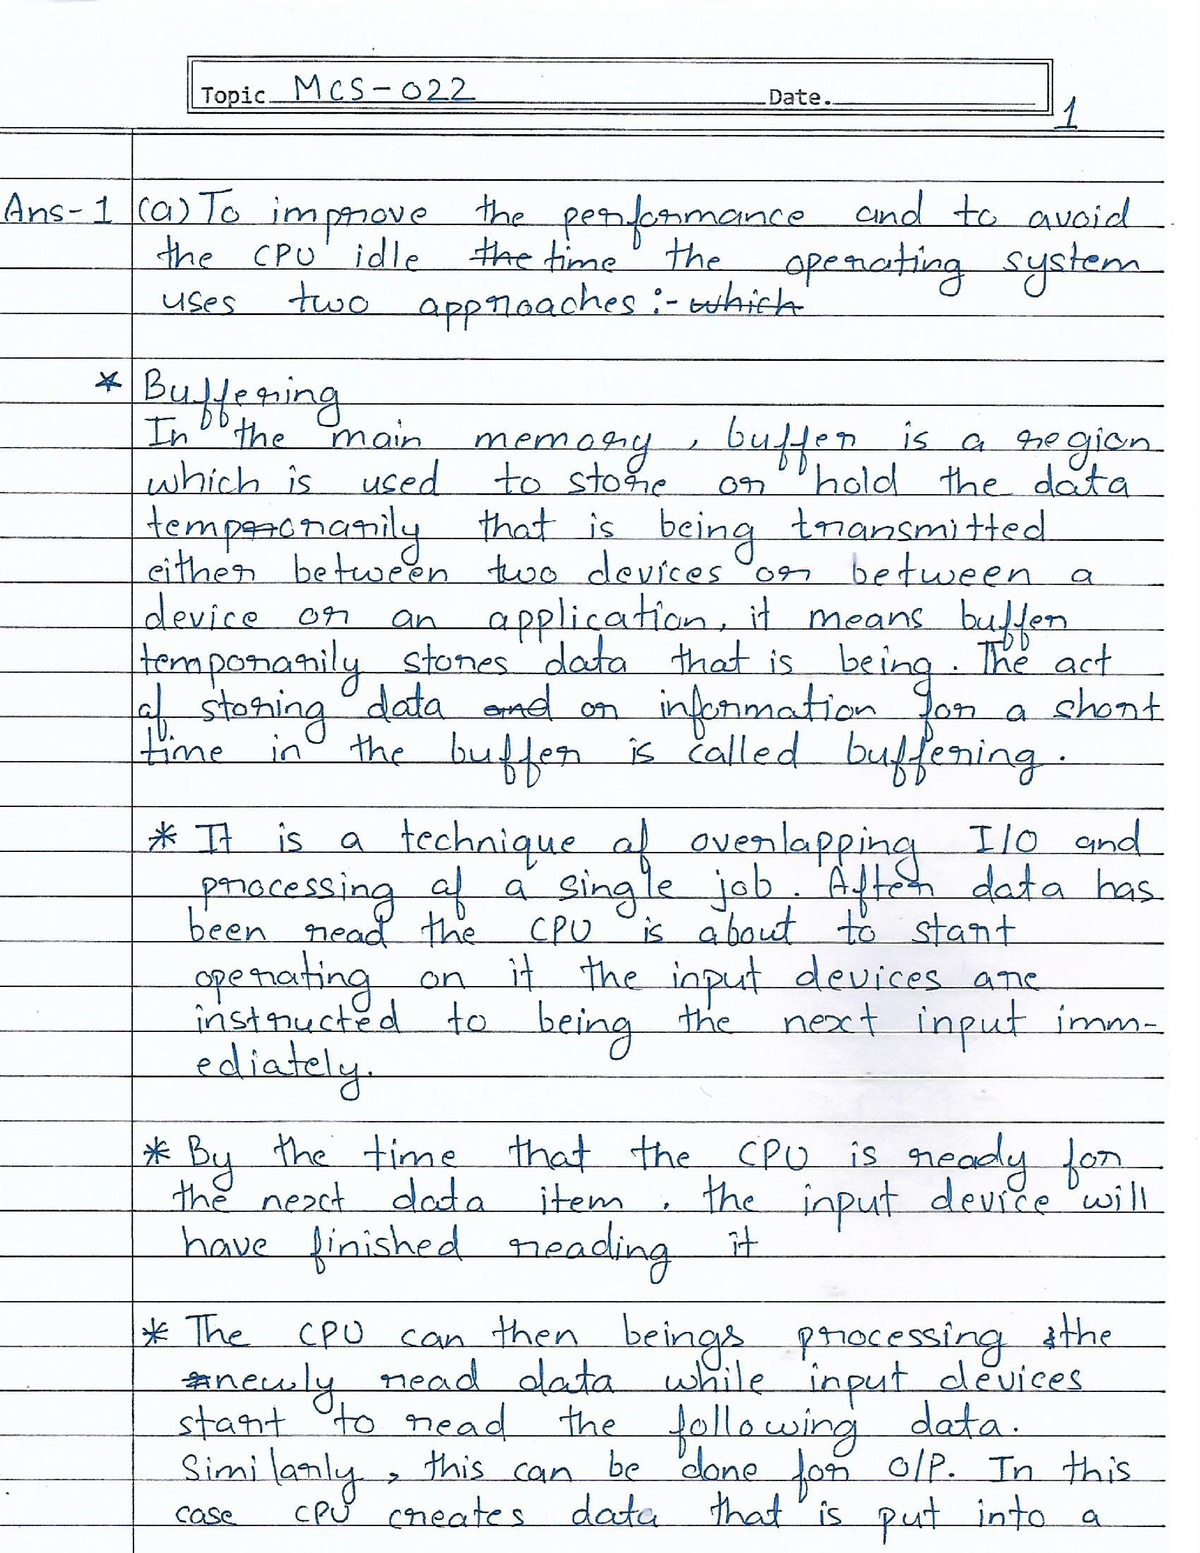 Topic MCS-022 Date.
1
Ans-1 (a) To improve the performance and to avoid
the CPU idle the time the operating system
uses two approaches :- which
* Buffering
In the main memory, buffer is a region
which is used to store or hold the data
temporarily that is being transmitted
either between two devices or between a
device or an application, it means buffer
temporarily stores data that is being. The act
of storing data and or information for a short
time in the buffer is called buffering.
* It is a technique of overlapping I/O and
processing of a single job. After data has
been read the CPU is about to start
operating on it the input devices are
instructed to being the next input imm-
ediately.
* By the time that the CPU is ready for
the next data item, the input device will
have finished reading it
* The CPU can then beings processing the
newly read data while input devices
start to read the following data.
Similarly, this can be done for O/P. In this
case CPU creates data that is put into a